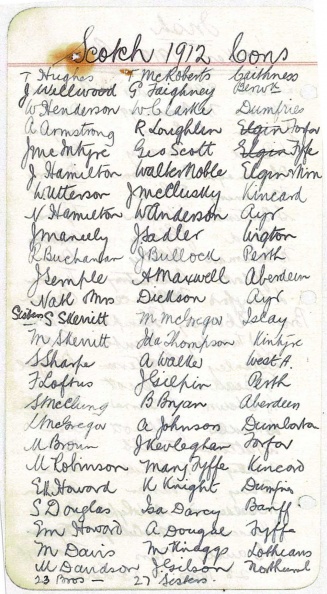 Scotch 1912 Cons
T Hughes T McRoberts Caithness
J Wellwood G Faighney Berw
W Henderson W. Clarke Dumfries
A Armstrong R Loughlen Elgin Forfar
J McIntyre Geo Scott Elgin Fyffe
J Hamilton Walter Noble Elgin Nirn
W Utterson J McClusky Kincard
N Hamilton W Anderson Ayr
J Maneely J Sadler Wigton
R Buchanan J Bullock Perth
J Semple A Maxwell Aberdeen
Natl Mrs Dickson Ayr
Sisters S Skerritt M McGregor Islay
M Skerritt Ida Thompson Kintyre
S Sharpe A Walker West A.
F Loftus J Gilpin Perth
S McClung B Bryan Aberdeen
L McGregor A Johnson Dumbarton
M Brown J Kevleghan Forfar
M Robinson Mary Fyffe Kincord
EM Howard K Knight Dumfries
S Douglas Isa Darcy Banff
Em Howard A Dougal Fyffe
M Davis M Knaggs Lothians
M Davidson J. Gilson Northumd
23 Bros — 27 Sisters.